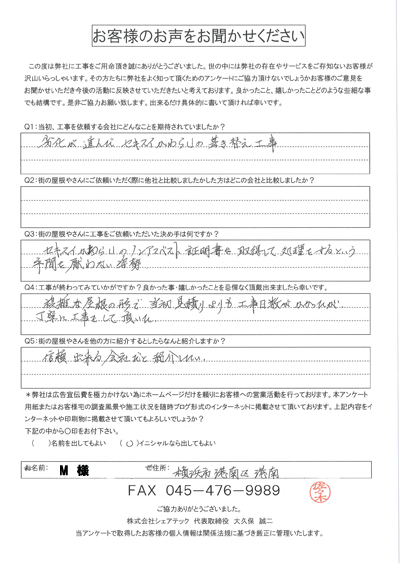 お客様のお声をお聞かせください
この度は弊社に工事をご用命頂き誠にありがとうございました。世の中には弊社の存在やサービスをご存知ないお客様が
沢山いらっしゃいます。その方たちに弊社をよく知って頂くためのアンケートにご協力頂けないでしょうかお客様のご意見を
お聞かせいただき今後の活動に反映させていただきたいと考えております。良かったこと、嬉しかったことどのような些細な事
でも結構です。是非ご協力お願い致します。出来るだけ具体的に書いて頂ければ幸いです。
Q1:当初、工事を依頼する会社にどんなことを期待されていましたか?
劣化が進んだセキスイかわらUの葺き替え工事
Q2:街の屋根やさんにご依頼いただく際に他社と比較しましたかした方はどこの会社と比較しましたか?
Q3:街の屋根やさんに工事をご依頼いただいた決め手は何ですか?
セキスイかわらUのノンアスベスト証明書を取得して処理をするという
手間を厭わない姿勢
Q4:工事が終わってみていかがですか?良かった事・嬉しかったことを忌憚なく頂戴出来ましたら幸いです。
複雑な屋根の形で当初見積りよりも工事日数がかかったが
丁寧に工事をして頂いた
Q5:街の屋根やさんを他の方に紹介するとしたらなんと紹介しますか?
信頼出来る会社だと紹介したい。
*弊社は広告宣伝費を極力かけない為にホームページだけを頼りにお客様への営業活動を行っております。本アンケート
用紙またはお客様宅の調査風景や施工状況を随時ブログ形式のインターネットに掲載させて頂いております。上記内容をイ
ンターネットや印刷物に掲載させて頂いてもよろしいでしょうか?
下記の中から〇印をお付下さい。
( )名前を出してもよい (〇)イニシャルなら出してもよい
お名前: M 様 ご住所: 横浜市港南区港南
FAX 045-476-9989
佐々木
ご協力ありがとうございました。
株式会社シェアテック 代表取締役 大久保 誠二
当アンケートで取得したお客様の個人情報は関係法規に基づき厳正に管理いたします。